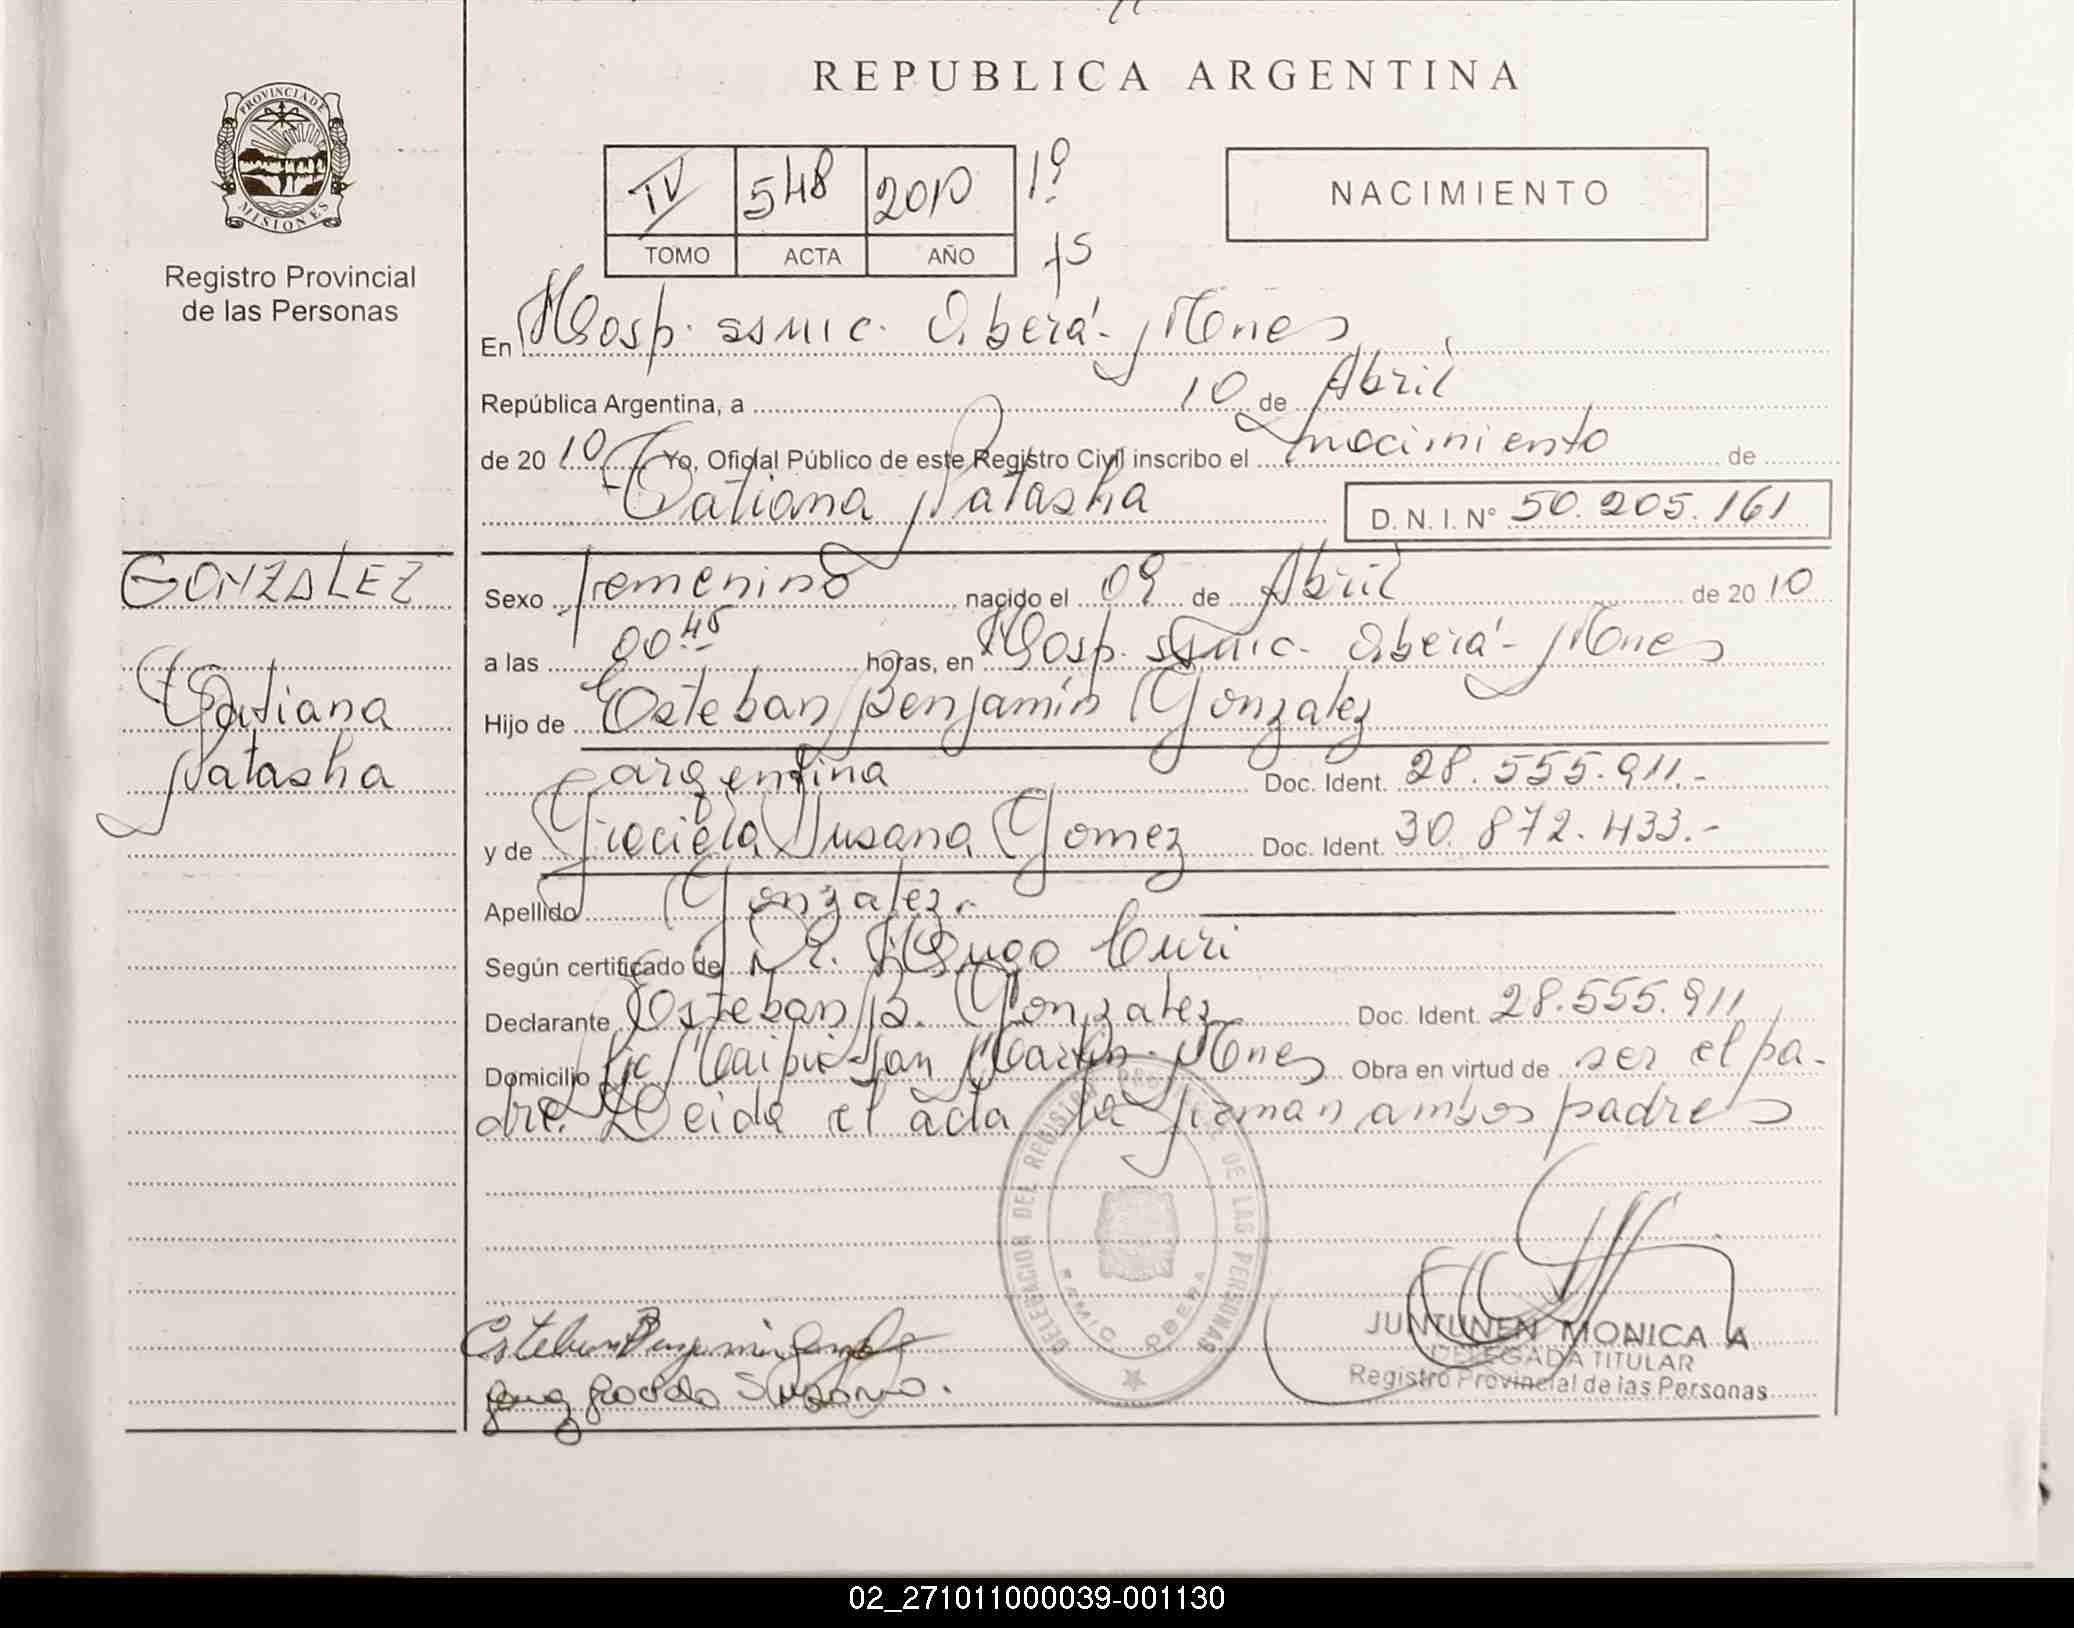 REPUBLICA ARGENTINA
PROVINCIA DE MISIONES
Registro Provincial
de las Personas
IV 548 2010 1º
TOMO ACTA AÑO
NACIMIENTO
En Hosp. ssmic. Oberá- Mnes
República Argentina, a 10 de Abril
de 2010 Yo, Oficial Público de este Registro Civil inscribo el nacimiento de
Tatiana Natasha D. N. I. N° 50.205.161
GONZALEZ
Tatiana
Natasha
Sexo femenino nacido el 09 de Abril de 2010
a las 00 45 horas, en Hosp. ssmic. Oberá- Mnes
Hijo de Esteban Benjamín Gonzalez
argentina Doc. Ident. 28.555.911.-
y de Graciela Susana Gomez Doc. Ident. 30.872.433.-
Apellido Gonzalez.
Según certificado de Dr. Hugo Curi
Declarante Esteban B. Gonzalez Doc. Ident. 28.555.911
Domicilio Pic Maipú-San Martín- Mnes Obra en virtud de ser el pa-
dre. Leida el acta la firman ambos padres
DELEGACION DEL REGISTRO PROVINCIAL DE LAS PERSONAS
OBERA
Esteban Benjamin
Susana.
JUNTUNEN MONICA A
DELEGADA TITULAR
Registro Provincial de las Personas
02_271011000039-001130